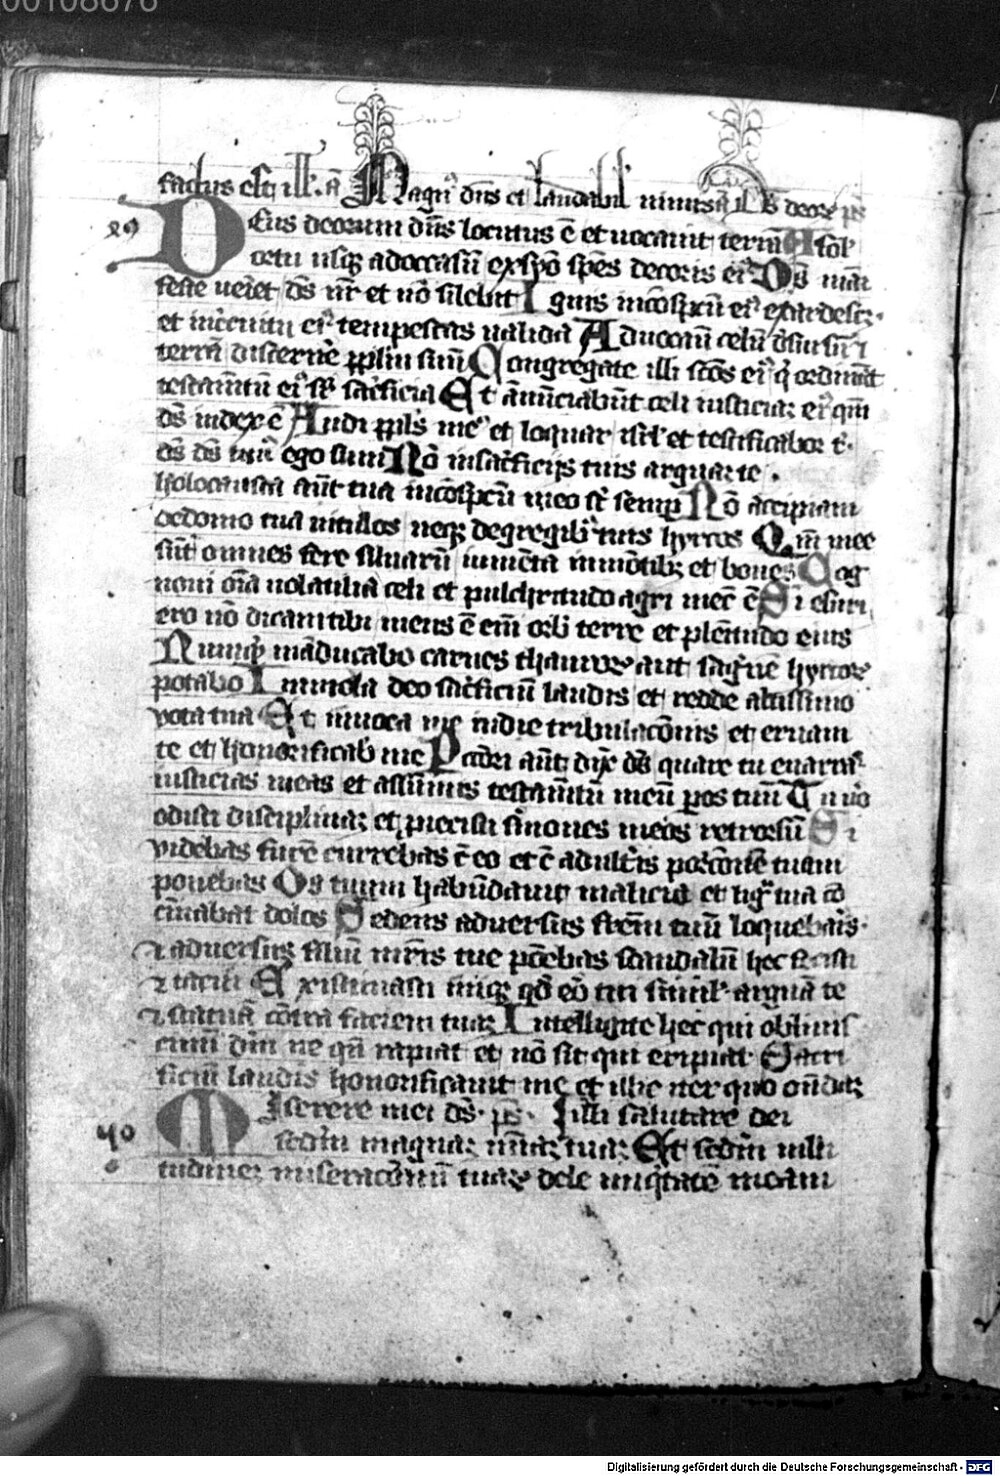 00108676
factus est ill'. a Magn' dns et laudabil' nimis a il' Ps decore ps
49 Deus deorum dns locutus e et uocauit terra A sol'
ortu usq adoccasu ex syo spes decoris ei' Ds mani
feste ueiet ds nr et no silebit Ignis incospcu ei' exardescz.
et incircuitu ei' tempestas ualida Aduocauit celu desursu et
terra discerne pplm suu Congregate illi scos ei' q ordinant
testamtu ei' sr sacficia Et anuciabunt celi iusticiaz ei' qm
ds iudex e Audi ppls me' et loquar isrl' et testificabor t'.
ds ds tuus ego sum No insacficijs tuis arguam te.
holocausta aut tua incospcu meo st semp No accipiam
dedomo tua uitulos neq degregib' tuis hyrcos Qm mee
sut omnes fere siluaru iumeta imotibz et boues Cog
noui oia uolatilia celi et pulchritudo agri mec e Si esuri
ero no dicam tibi meus e em orb' terre et pletudo eius
Numqd maducabo carnes thauror aut sague hyrcor
potabo Immola deo sacficiu laudis et redde altissimo
vota tua Et inuoca me indie tribulacois et eruam
te et honorificab' me Pctori aut dix ds quare tu enarras
iusticias meas et assumis testamtu meu p os tuu Tu uo
odisti disciplinaz et proiecisti smones meos retrorsu Si
videbas fure currebas c eo et c adultis porcone tuam
ponebas Os tuum habudauit malicia et liga tua co
cinabat dolos Sedens aduersus frem tuu loquebaris.
& aduersus filiu mris tue poebas scandalu hec fecisti
& tacui Existimasti iniq qd ero tui simil' arguam te
& statua contra faciem tuaz Intelligite hec qui obliuis
cimi dm ne qn rapiat et no sit qui eripiat Sacri
ficiu laudis honorificauit me et illic iter quo ondaz
50 Miserere mei ds. ps. illi salutare dei
secdm magnaz miaz tuaz Et secdm multi
tudinez miseracionu tuaz dele iniqtate meam
Digitalisierung gefördert durch die Deutsche Forschungsgemeinschaft - DFG